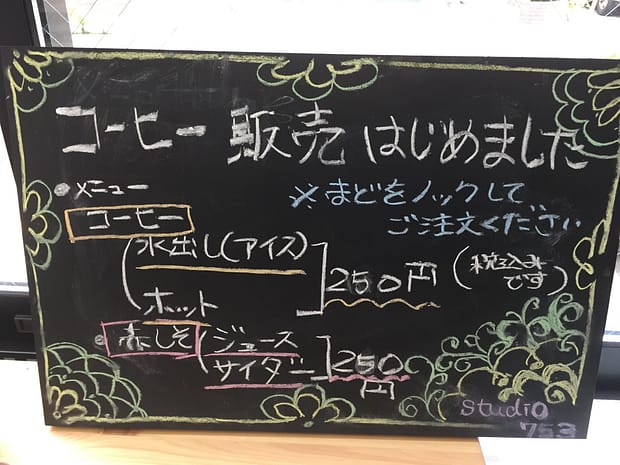 コーヒー 販売 はじめました
●メニュー
※まどをノックして
ご注文ください
コーヒー
水出し(アイス)
ホット
250円
(税込み
です)
●赤しそ
ジュース
サイダー
250
円
studio
753